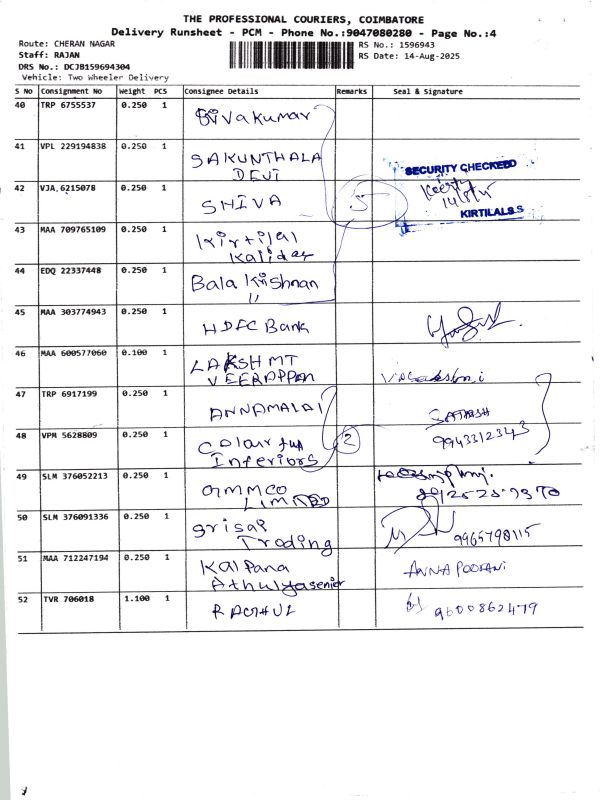 THE PROFESSIONAL COURIERS, COIMBATORE
Delivery Runsheet - PCM - Phone No.:9047080280 - Page No.:4
Route: CHERAN NAGAR
RS No.: 1596943
Staff: RAJAN
RS Date: 14-Aug-2025
DRS No.: DCJB159694304
Vehicle: Two Wheeler Delivery
S No Consignment No Weight PCS Consignee Details Remarks Seal & Signature
40 TRP 6755537 0.250 1 Sivakumar
41 VPL 229194838 0.250 1 SAKUNTHALA
DEVI
SECURITY CHECKED
42 VJA 6215078 0.250 1 SHIVA 5
14/8/25
KIRTILALS
43 MAA 709765109 0.250 1 Kirtilal
Kalidas
44 EDQ 22337448 0.250 1 Bala Krishnan
45 MAA 303774943 0.250 1 HDFC Bank
46 MAA 600577060 0.100 1 LAKSHMI
VEERAPPAN
47 TRP 6917199 0.250 1 ANNAMALAI
SATHISH
48 VPM 5628809 0.250 1 Colourful 2 9943312343
Inferiors
49 SLM 376052213 0.250 1 AMMCO
LIMITED
50 SLM 376091336 0.250 1 Srisai
Trading 9965798115
51 MAA 712247194 0.250 1 Kalpana ANNAPOORANI
Athulyasenier
52 TVR 706018 1.100 1 RAGHUL 9600862479